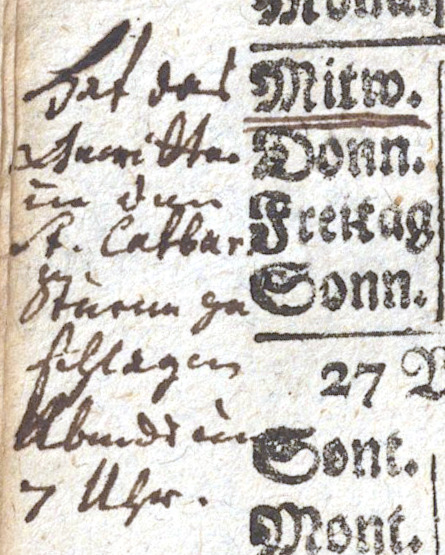 Monta
Hat das
Mitw.
Gewitter
Donn.
in den
St. Cathar
Freitag
Sturm ge
Sonn.
schlagen
27
Abends um
Sont.
7 Uhr.
Mont.